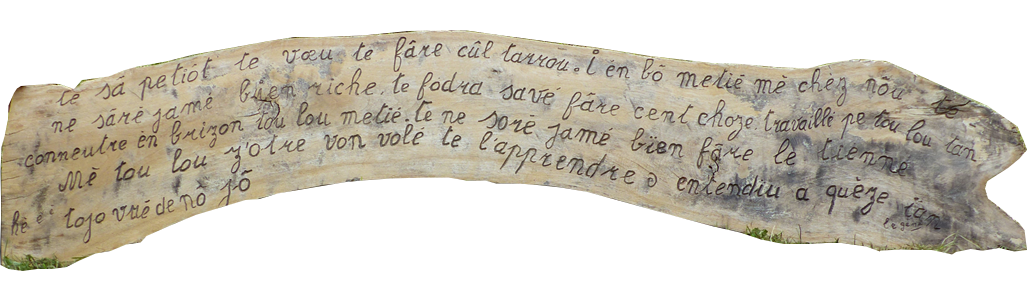 té sâ petiót te vœu te fâre cûl tarrou. i én bô metié mé chéz nôu té
ne sâré jamé bïen riche. te fodra savé fâre cent choze. travaillé pe tou lou tan
conneutre én brizon tou lou metié. te ne soré jamé bïen fâre le tienne
Mé tou lou z'otre von volé te l'apprendre entendiu a quèze
tojo vrié de nô jô